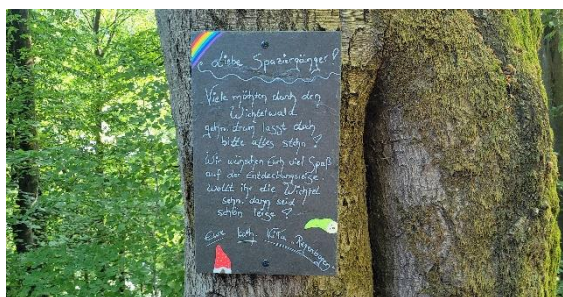 Liebe Spaziergänger!
Viele möchten durch den
Wichtelwald
gehn, drum lasst doch
bitte alles stehn!
Wir wünschen Euch viel Spaß
auf der Entdeckungsreise
wollt ihr die Wichtel
sehn, dann seid
schön leise!
Eure kath. Kita „Regenbogen“